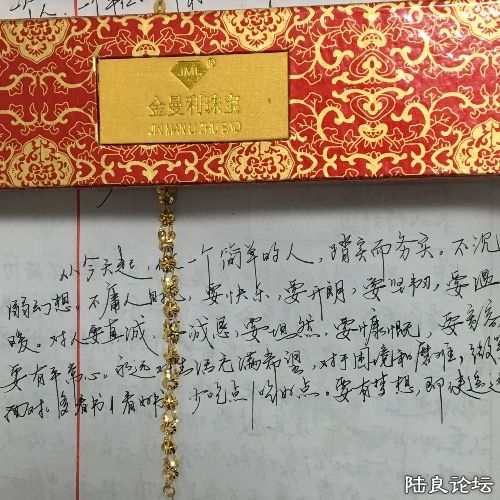 JML®
金曼利珠宝
JIN MAN LI ZHU BAO
从今天起,一个简单的人,踏实而务实。不沉
溺幻想。不庸人自,要快乐,要开朗,要坚韧,要温
暖。对人要真诚,诚恳,要坦然,要慷慨,要
要有平常心。永远对生活充满希望,对于困境和磨难,微
面对。多看书,看好,少吃点,吃好点。要有梦想,即使遥
陆良论坛